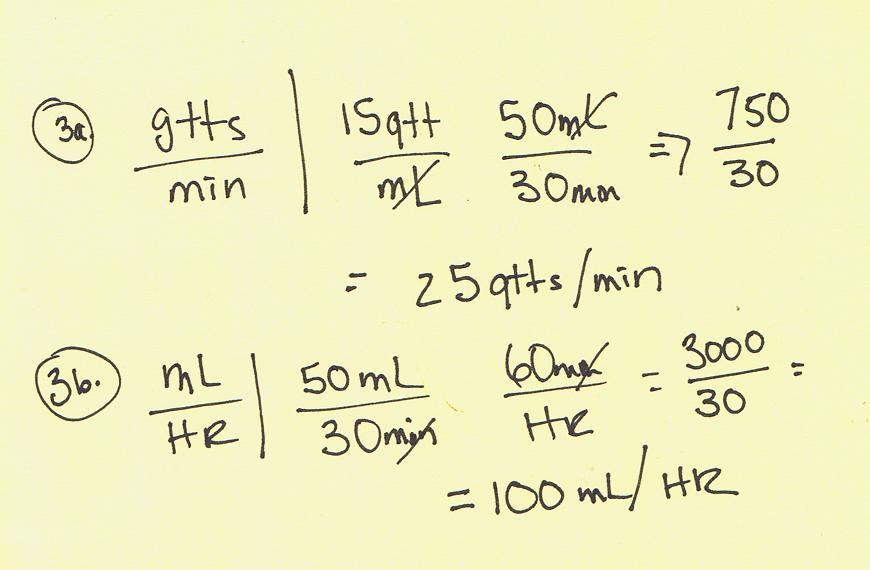 3a. gtts / min | 15gtt / mL 50mL / 30min => 750 / 30
= 25gtts/min
3b. mL / HR | 50mL / 30min 60min / HR = 3000 / 30 =
= 100 mL/HR